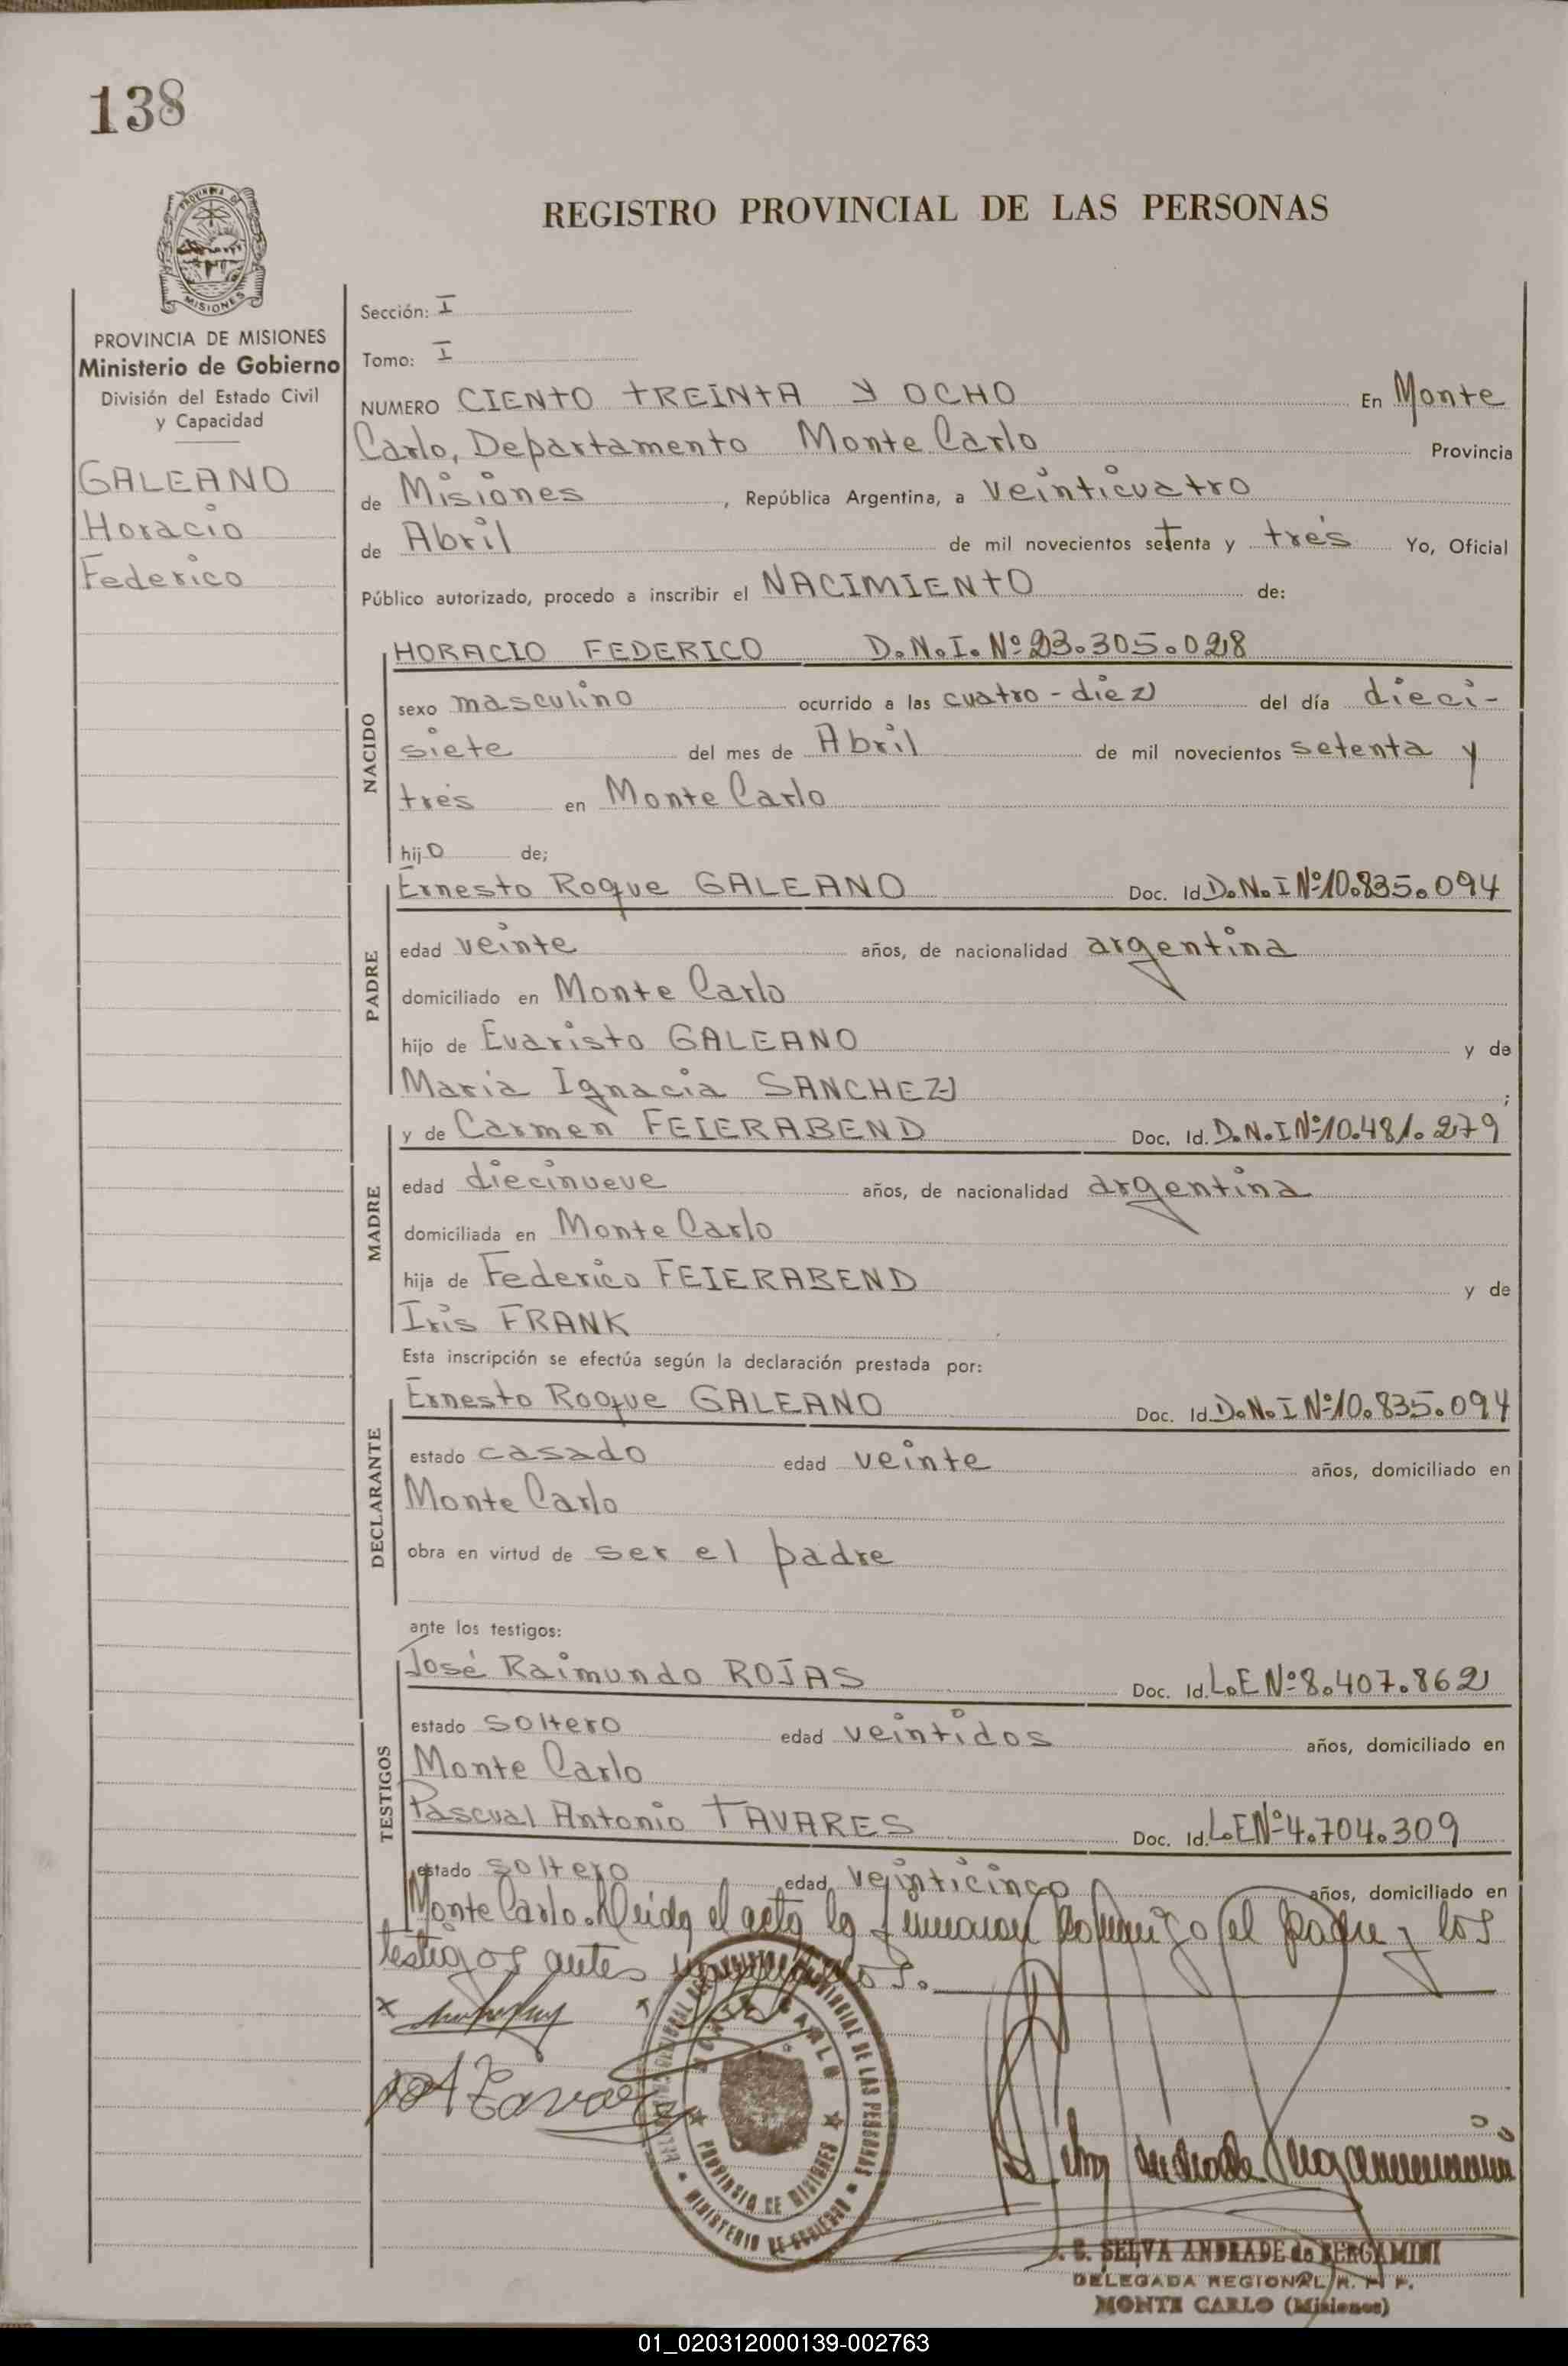 138
PROVINCIA DE
MISIONES
REGISTRO PROVINCIAL DE LAS PERSONAS
PROVINCIA DE MISIONES
Ministerio de Gobierno
División del Estado Civil
y Capacidad
GALEANO
Horacio
Federico
Sección: I
Tomo: I
NUMERO CIENTO TREINTA Y OCHO En Monte
Carlo, Departamento Monte Carlo Provincia
de Misiones, República Argentina, a veinticuatro
de Abril de mil novecientos setenta y tres Yo, Oficial
Público autorizado, procedo a inscribir el NACIMIENTO de:
NACIDO
HORACIO FEDERICO D.N.I. Nº 23.305.028
sexo masculino ocurrido a las cuatro-diez del día dieci-
siete del mes de Abril de mil novecientos setenta y
tres en Monte Carlo
hijo de;
PADRE
Ernesto Roque GALEANO Doc. Id. D.N.I Nº 10.835.094
edad veinte años, de nacionalidad argentina
domiciliado en Monte Carlo
hijo de Evaristo GALEANO y de
María Ignacia SANCHEZ;
MADRE
y de Carmen FEIERABEND Doc. Id. D.N.I Nº 10.481.279
edad diecinueve años, de nacionalidad argentina
domiciliada en Monte Carlo
hija de Federico FEIERABEND y de
Iris FRANK
Esta inscripción se efectúa según la declaración prestada por:
DECLARANTE
Ernesto Roque GALEANO Doc. Id. D.N.I Nº 10.835.094
estado casado edad veinte años, domiciliado en
Monte Carlo
obra en virtud de ser el padre
ante los testigos:
TESTIGOS
José Raimundo ROJAS Doc. Id. L.E Nº 8.407.862
estado soltero edad veintidos años, domiciliado en
Monte Carlo
Pascual Antonio TAVARES Doc. Id. L.E Nº 4.704.309
estado soltero edad veinticinco años, domiciliado en
Monte Carlo. Leida el acta la firmaron conmigo el padre y los
testigos antes
MONTE CARLO
PROVINCIAL DE LAS PERSONAS
PROVINCIA DE MISIONES
MINISTERIO DE GOBIERNO
SELVA ANDRADE de BERGAMINI
DELEGADA REGIONAL R. P.
MONTE CARLO (Misiones)
01_020312000139-002763